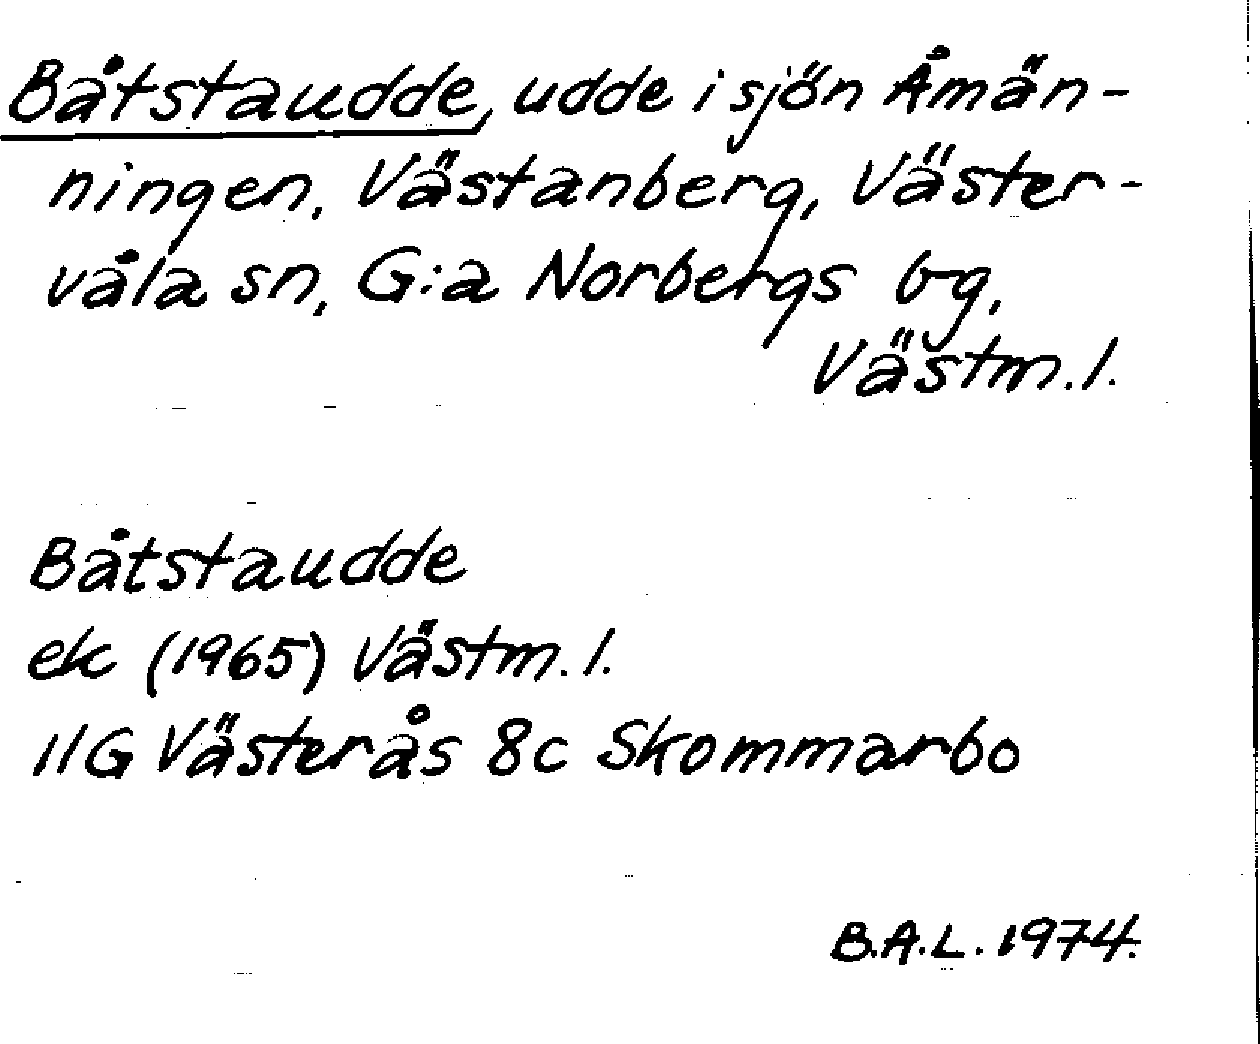 Båtstaudde, udde i sjön Åmän-
ningen, Västanberg, Väster-
våla sn, G:a Norbergs bg,
Västm. l.
Båtstaudde
ek (1965) Västm. l.
11G Västerås 8c Skommarbo
B.A.L. 1974.